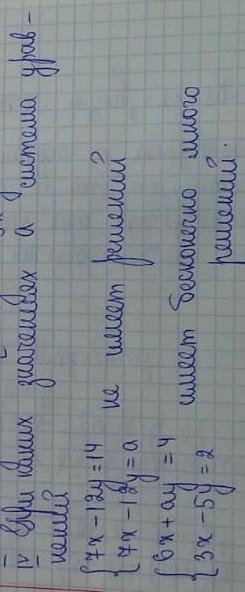 IV При каких значениях а система урав-
нений
{7x-12y=14
{7x-12y=a
не имеет решений?
{6x+ay=4
{3x-5y=2
имеет бесконечно много
решений.